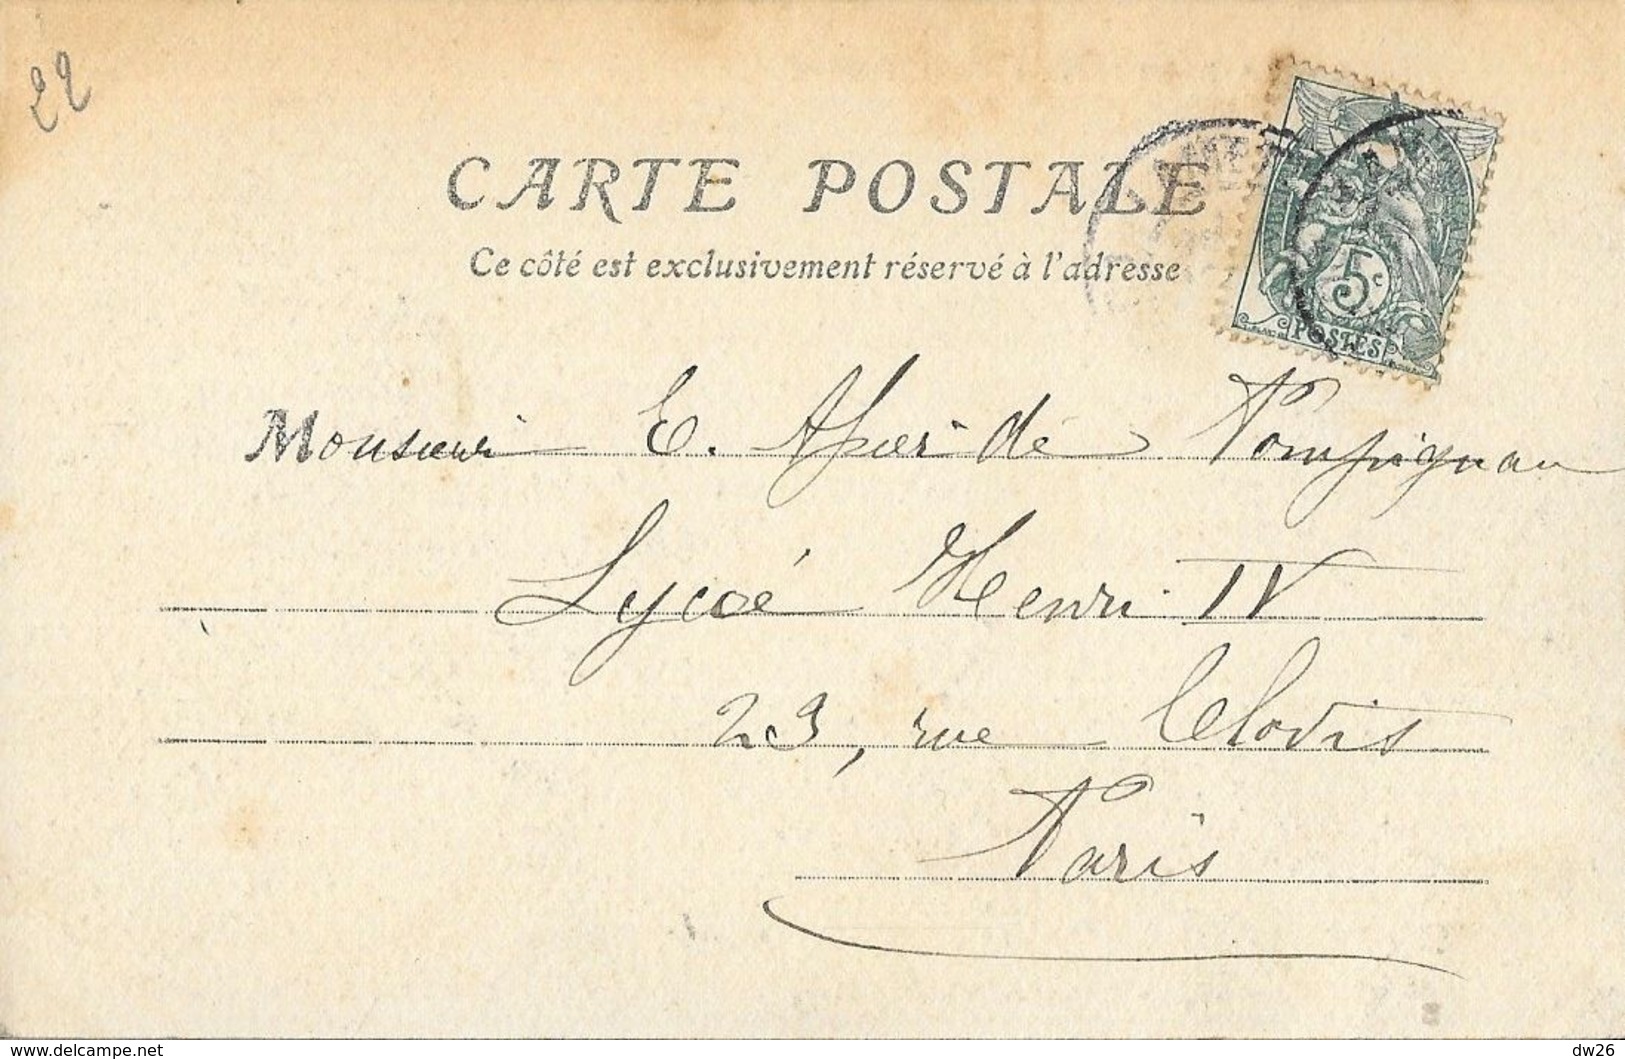 22
CARTE POSTALE
Ce côté est exclusivement réservé à l'adresse
5c
POSTES
Monsieur E. de Pompignan
Lycée Henri IV
23, rue Clovis
Paris
dw26